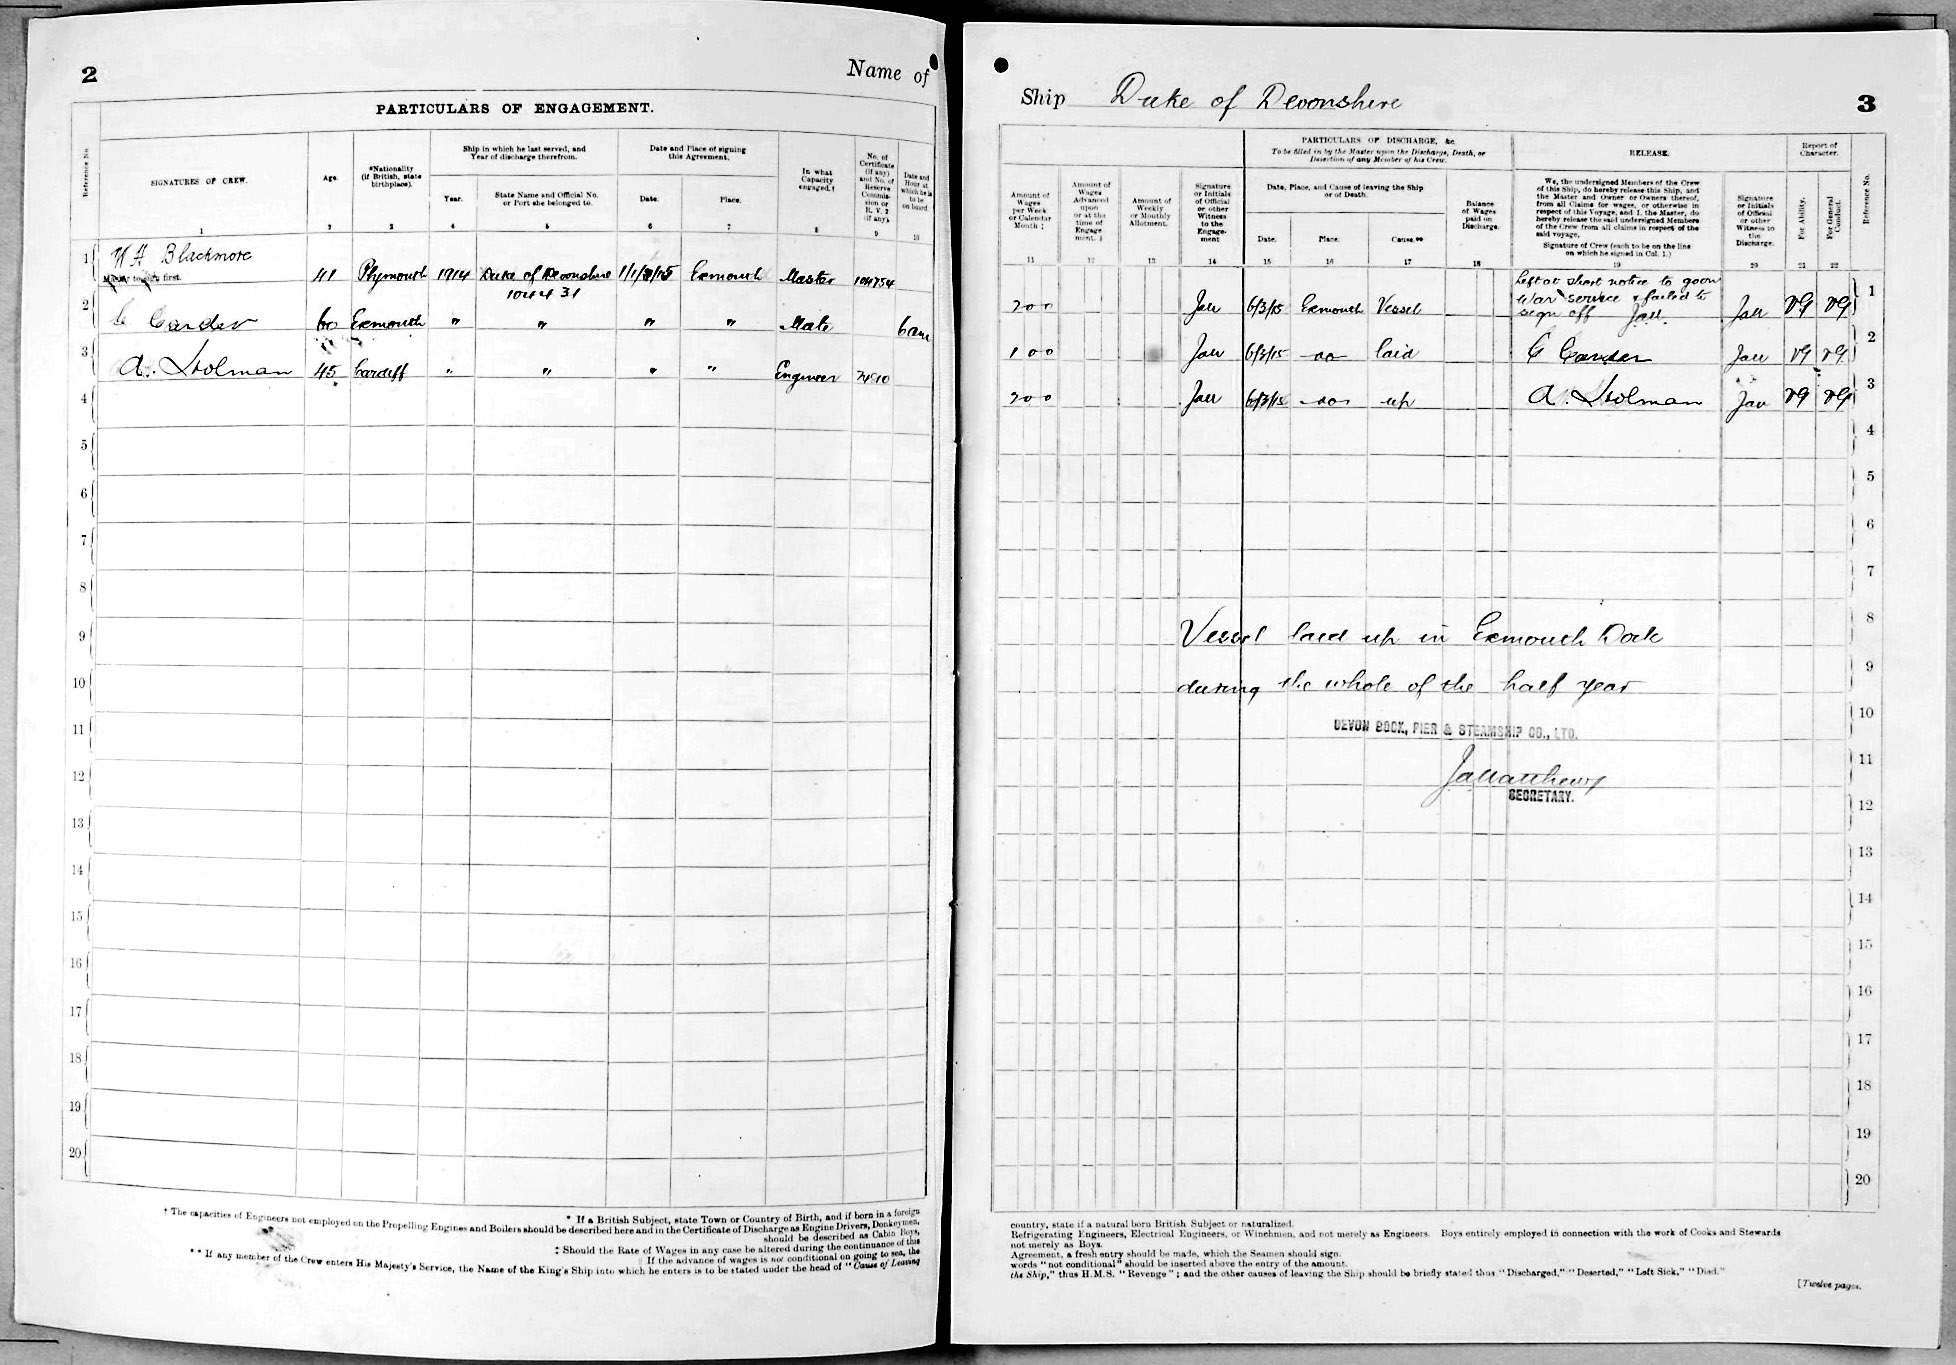 2
Name of
PARTICULARS OF ENGAGEMENT.
Reference No.
SIGNATURES OF CREW.
Age.
*Nationality
(if British, state
birthplace).
Ship in which he last served, and
Year of discharge therefrom.
Year.
State Name and Official No.
or Port she belonged to.
Date and Place of signing
this Agreement.
Date.
Place.
In what
Capacity
engaged.†
No. of
Certificate
(if any)
and No. of
Reserve
Commis-
sion or
R. V. 2
(if any).
Date and
Hour at
which he is
to be
on board.
1 2 3 4 5 6 7 8 9 10
1 W A Blackmore
Master to sign first.
41 Plymouth 1914 Duke of Devonshire 1/1/15 Exmouth Master 104754
104431
2 C Carder 60 Exmouth " " " " Mate 6 am
3 A. Holman 45 Cardiff " " " " Engineer 7490
4
5
6
7
8
9
10
11
12
13
14
15
16
17
18
19
20
* If a British Subject, state Town or Country of Birth, and if born in a foreign
† The capacities of Engineers not employed on the Propelling Engines and Boilers should be described here and in the Certificate of Discharge as Engine Drivers, Donkeymen,
should be described as Cabin Boys,
‡ Should the Rate of Wages in any case be altered during the continuance of this
If the advance of wages is not conditional on going to sea, the
** If any member of the Crew enters His Majesty's Service, the Name of the King's Ship into which he enters is to be stated under the head of "Cause of Leaving
Ship Duke of Devonshire
3
Amount of
Wages
per Week
or Calendar
Month ‡
Amount of
Wages
Advanced
upon
or at the
time of
Engage
ment. ‡
Amount of
Weekly
or Monthly
Allotment.
Signature
or Initials
of Official
or other
Witness
to the
Engage-
ment
PARTICULARS OF DISCHARGE, &c.
To be filled in by the Master upon the Discharge, Death, or
Desertion of any Member of his Crew.
Date, Place, and Cause of leaving the Ship
or of Death.
Date.
Place.
Cause.**
Balance
of Wages
paid on
Discharge.
RELEASE.
We, the undersigned Members of the Crew
of this Ship, do hereby release this Ship, and
the Master and Owner or Owners thereof,
from all Claims for wages, or otherwise in
respect of this Voyage, and I, the Master, do
hereby release the said undersigned Members
of the Crew from all claims in respect of the
said voyage.
Signature of Crew (each to be on the line
on which he signed in Col. 1.)
Signature
or Initials
of Official
or other
Witness to
the
Discharge.
Report of
Character.
For Ability.
For General
Conduct.
Reference No.
11 12 13 14 15 16 17 18 19 20 21 22
Left at short notice to go on
War service & failed to
sign off
200 6/3/15 Exmouth Vessel VG VG 1
100 6/3/15 -do- laid C Carder VG VG 2
200 6/3/15 -do- up A. Holman VG VG 3
4
5
6
7
8
Vessel laid up in Exmouth Dock
9
during the whole of the half year
10
DEVON DOCK, PIER & STEAMSHIP CO., LTD.
11
JaMatthews
SECRETARY.
12
13
14
15
16
17
18
19
20
country, state if a natural born British Subject or naturalized.
Refrigerating Engineers, Electrical Engineers, or Winchmen, and not merely as Engineers. Boys entirely employed in connection with the work of Cooks and Stewards
not merely as Boys.
Agreement, a fresh entry should be made, which the Seamen should sign.
words "not conditional" should be inserted above the entry of the amount.
the Ship," thus H.M.S. "Revenge"; and the other causes of leaving the Ship should be briefly stated thus "Discharged," "Deserted," "Left Sick," "Died."
[Twelve pages.